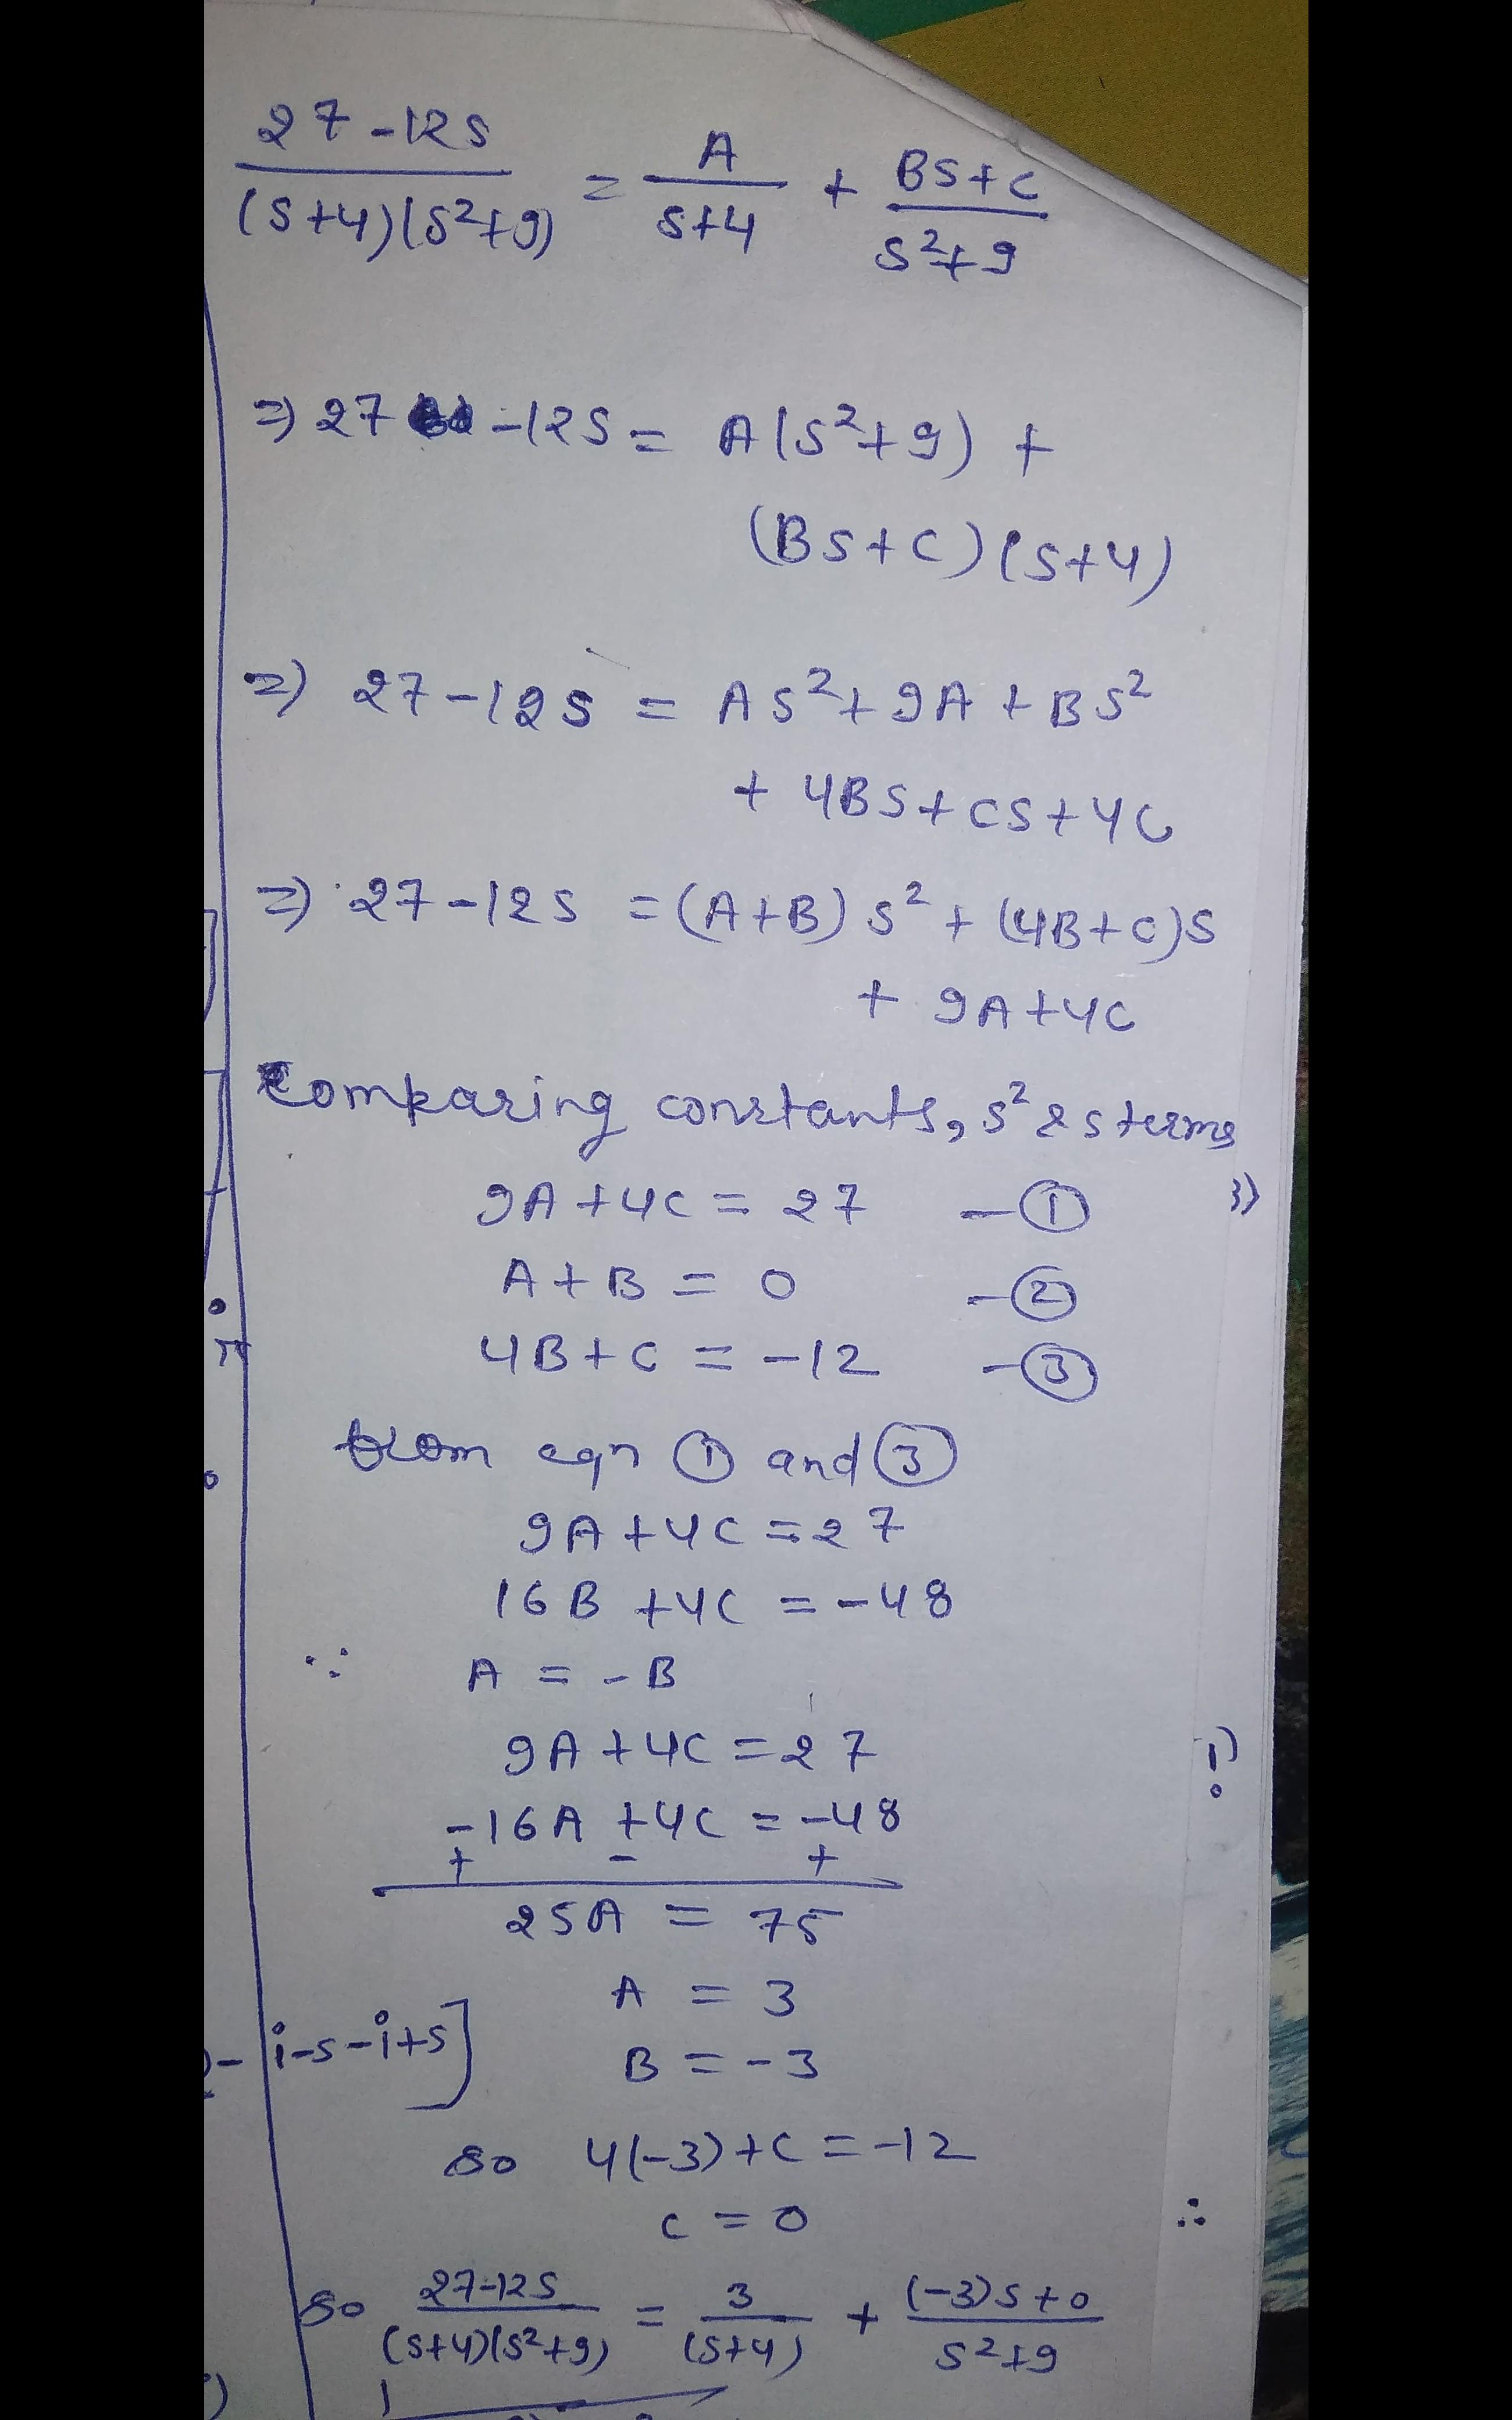 27-12s / (s+4)(s²+9) = A / s+4 + Bs+c / s²+9
=) 27 -12s = A(s²+9) +
(Bs+c)(s+4)
=) 27-12s = As²+9A+Bs²
+ 4Bs+cs+4c
=) 27-12s =(A+B)s²+(4B+c)s
+ 9A+4c
Comparing constants, s² & s terms
9A+4c = 27 -①
A+B = 0 -②
4B+c = -12 -③
from eqn ① and ③
9A+4c=27
16B+4c = -48
∵ A = -B
9A+4c=27
-16A+4c = -48
+ - +
25A = 75
A = 3
i-s-i+s]
B = -3
so 4(-3)+c=-12
c = 0
∴
so 27-12s / (s+4)(s²+9) = 3 / (s+4) + (-3)s+0 / s²+9